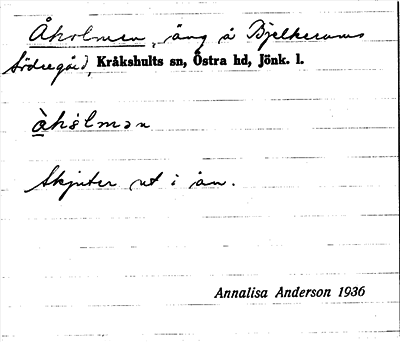 Åholmen, äng å Bjelkerums
Södregård, Kråkshults sn, Östra hd, Jönk. l.
Skjuter ut i ån.
Annalisa Anderson 1936